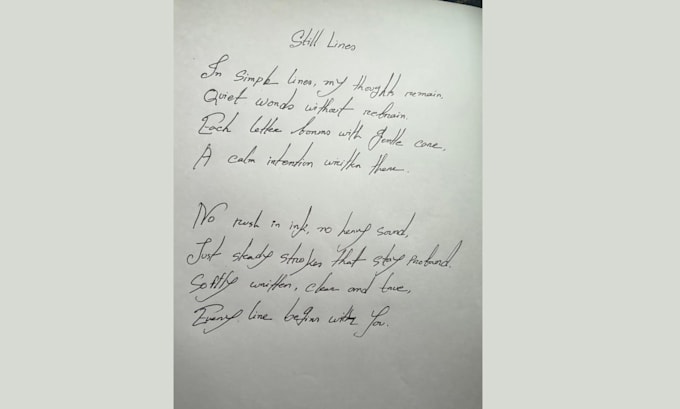 Still Lines
In simple lines, my thoughts remain.
Quiet words without refrain.
Each letter forms with gentle care,
A calm intention written there.
No rush in ink, no heavy sound,
Just steady strokes that stay profound.
Softly written, clear and true,
Every line begins with you.